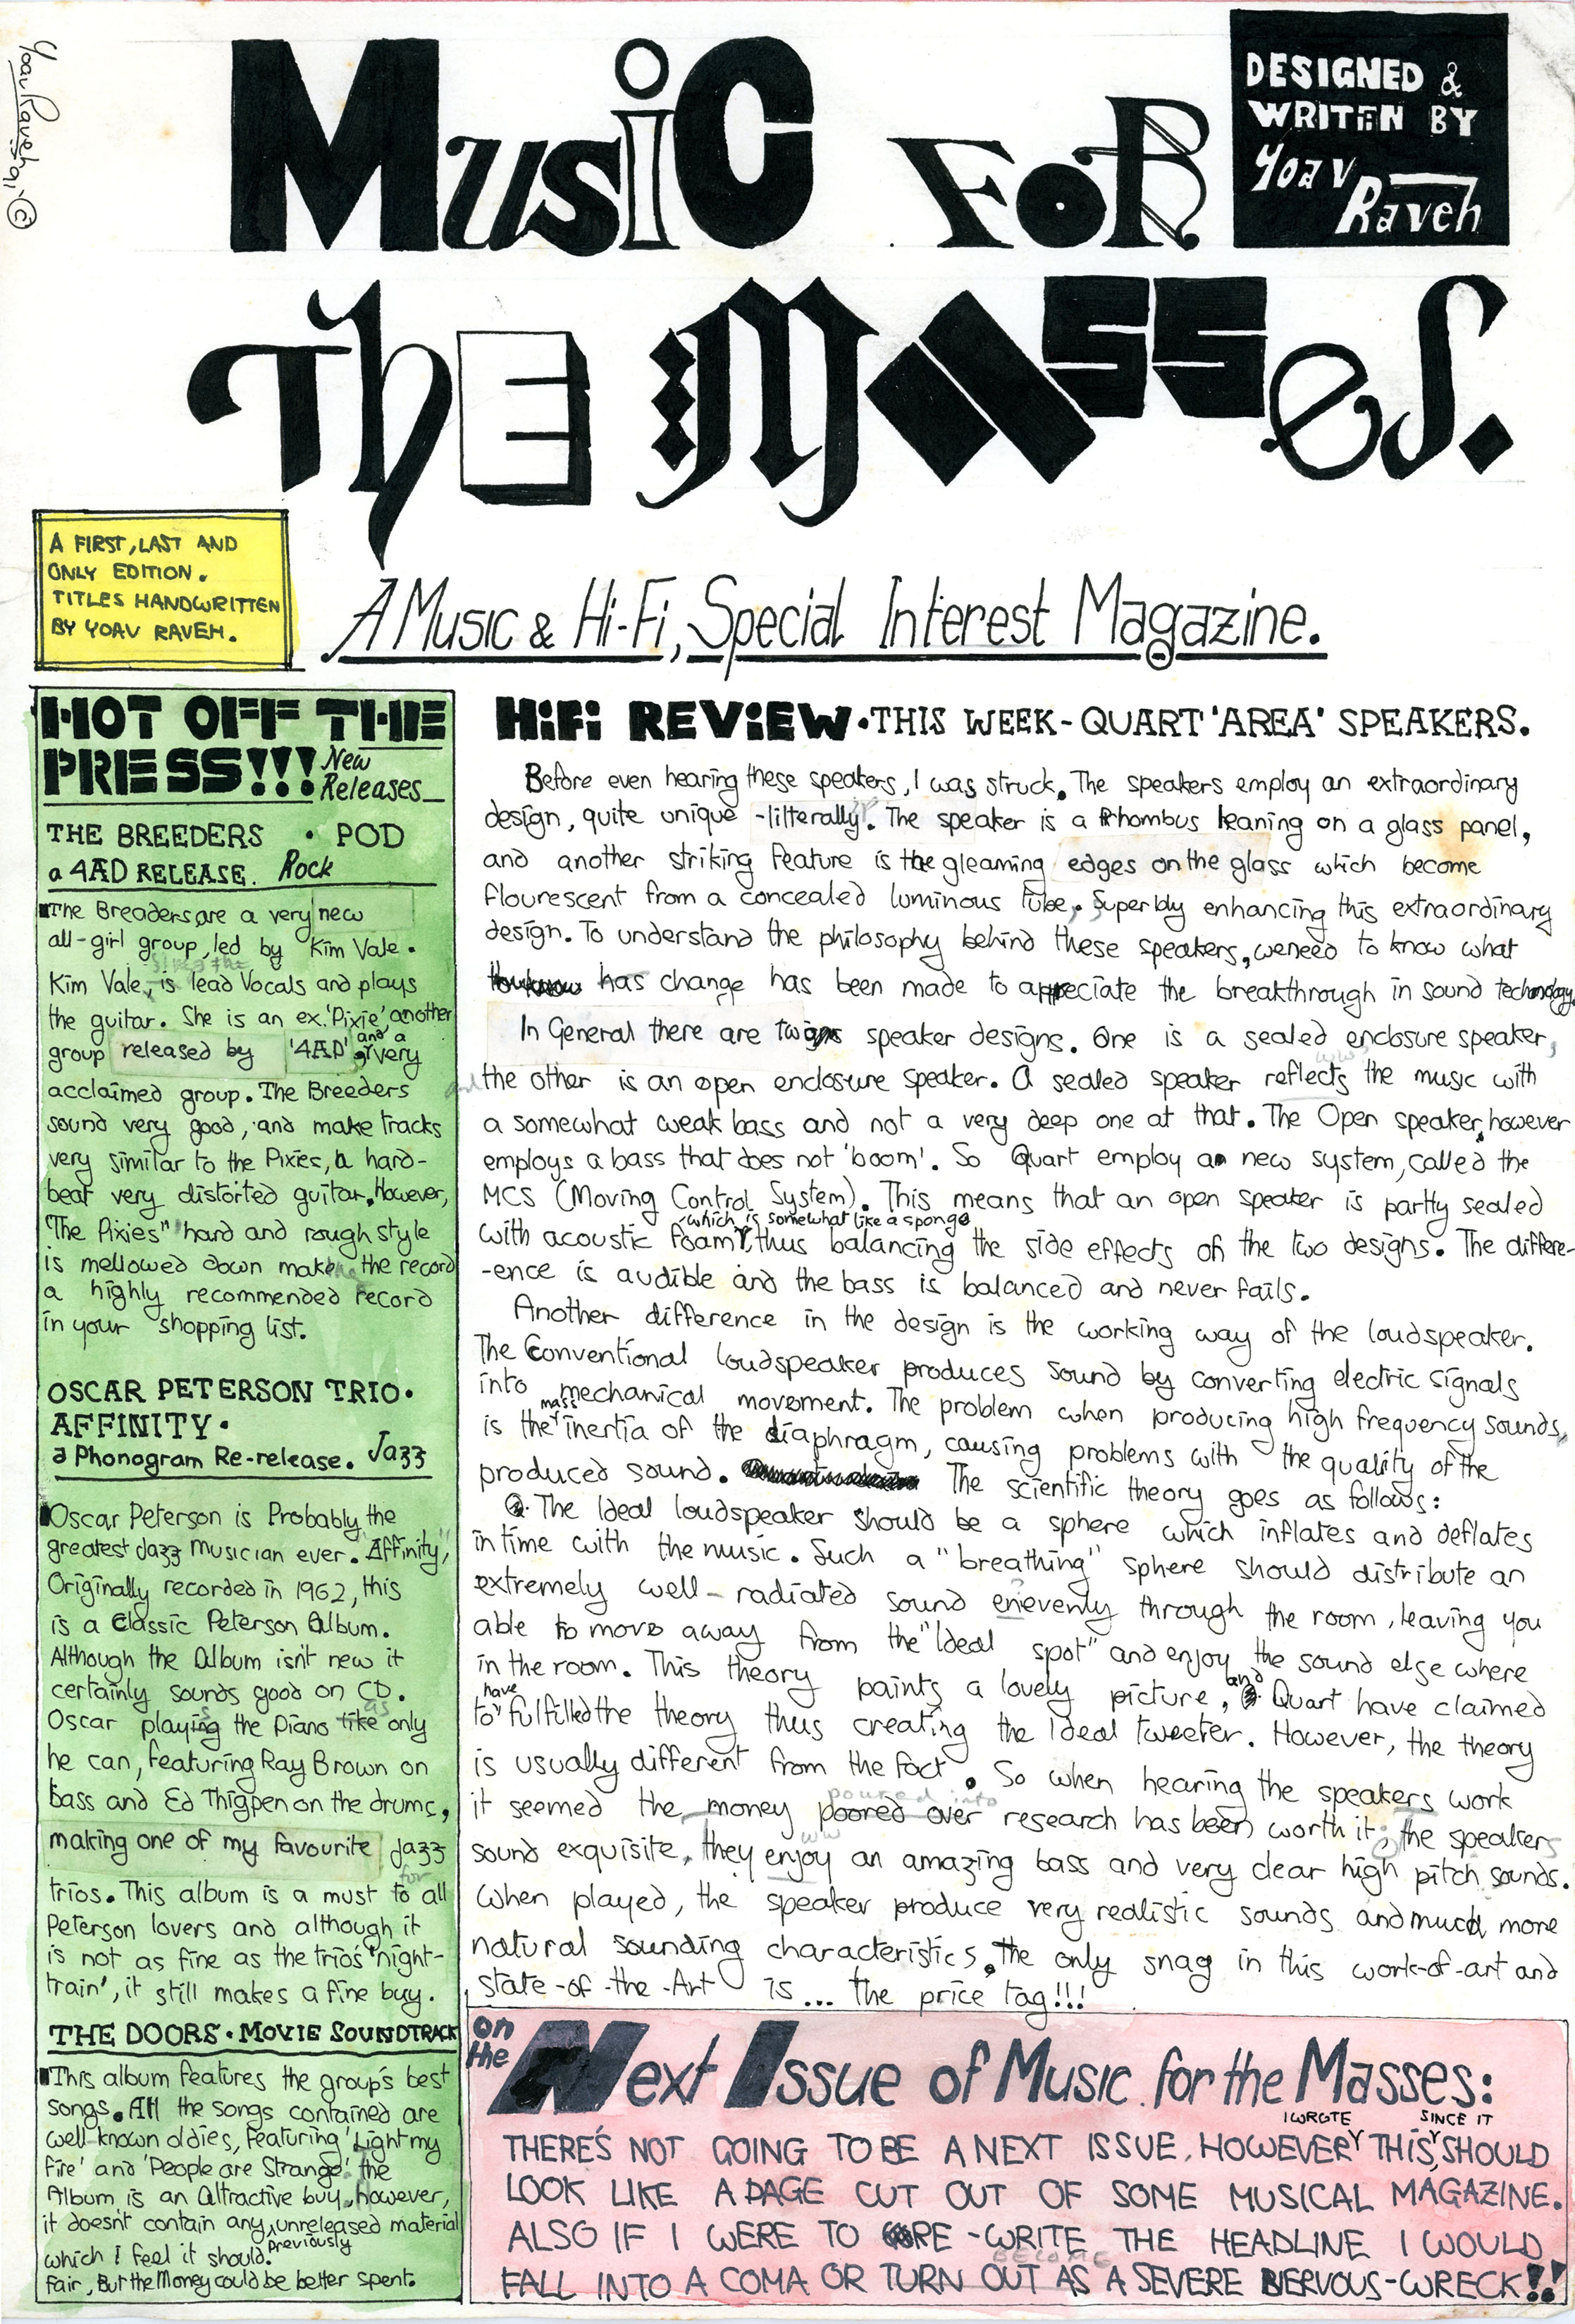 Yoav Raveh 91' ©
Music for
DESIGNED &
WRITTEN BY
Yoav
Raveh
The Masses.
A FIRST, LAST AND
ONLY EDITION.
TITLES HANDWRITTEN
BY YOAV RAVEH.
A Music & Hi-Fi, Special Interest Magazine.
HOT OFF THE
PRESS!!! New
Releases
THE BREEDERS • POD
a 4AD RELEASE. Rock
The Breaders are a very new
all-girl group, led by Kim Vale.
Kim Vale, is lead Vocals and plays
the guitar. She is an ex. 'Pixie', another
group released by '4AD' and a very
acclaimed group. The Breeders
sound very good, and make tracks
very similar to the Pixies, a hard-
beat very distorted guitar. However,
"The Pixies" hard and rough style
is mellowed down make the record
a highly recommended record
in your shopping list.
OSCAR PETERSON TRIO.
AFFINITY.
a Phonogram Re-release. Jazz
Oscar Peterson is Probably the
greatest Jazz musician ever. "Affinity",
Originally recorded in 1962, this
is a Classic Peterson Album.
Although the Album isn't new it
certainly sounds good on CD.
Oscar playing the Piano like only
he can, featuring Ray Brown on
bass and Ed Thigpen on the drums,
making one of my favourite Jazz
trios. This album is a must to all
Peterson lovers and although it
is not as fine as the trio's 'night-
train', it still makes a fine buy.
THE DOORS • MOVIE SOUNDTRACK
This album features the group's best
songs. All the songs contained are
well-known oldies, featuring 'Light my
fire' and 'People are Strange' the
Album is an attractive buy, however,
it doesn't contain any previously unreleased material
which I feel it should.
Fair, But the Money could be better spent.
HiFi REVIEW • THIS WEEK - QUART 'AREA' SPEAKERS.
Before even hearing these speakers, I was struck. The speakers employ an extraordinary
design, quite unique - lilterally. The speaker is a Rhombus leaning on a glass panel,
and another striking feature is the gleaming edges on the glass which become
flourescent from a concealed luminous tube, Superbly enhancing this extraordinary
design. To understand the philosophy behind these speakers, we need to know what
has change has been made to appreciate the breakthrough in sound technology.
In General there are two speaker designs. One is a sealed enclosure speaker,
the other is an open enclosure speaker. A sealed speaker reflects the music with
a somewhat weak bass and not a very deep one at that. The Open speaker, however
employs a bass that does not 'boom'. So Quart employ a new system, called the
MCS (Moving Control System). This means that an open speaker is partly sealed
with acoustic foam, which is somewhat like a sponge thus balancing the side effects of the two designs. The differe-
-ence is audible and the bass is balanced and never fails.
Another difference in the design is the working way of the loudspeaker.
The Conventional loudspeaker produces sound by converting electric signals
into mechanical movement. The problem when producing high frequency sounds,
is the mass inertia of the diaphragm, causing problems with the quality of the
produced sound. The scientific theory goes as follows:
The Ideal loudspeaker should be a sphere which inflates and deflates
in time with the music. Such a "breathing" sphere should distribute an
extremely well-radiated sound evenly through the room, leaving you
able to move away from the "Ideal spot" and enjoy the sound else where
in the room. This theory paints a lovely picture, and Quart have claimed
to have fulfilled the theory thus creating the Ideal tweeter. However, the theory
is usually different from the fact. So when hearing the speakers work
it seemed the money poored over poured into research has been worth it; the speakers
sound exquisite, they enjoy an amazing bass and very clear high pitch sounds.
When played, the speaker produce very realistic sounds and much more
natural sounding characteristics. The only snag in this work-of-art and
state-of-the-Art is... the price tag!!!
on the Next Issue of Music for the Masses:
THERE'S NOT GOING TO BE A NEXT ISSUE. HOWEVER I WROTE THIS, SINCE IT SHOULD
LOOK LIKE A PAGE CUT OUT OF SOME MUSICAL MAGAZINE.
ALSO IF I WERE TO RE-WRITE THE HEADLINE I WOULD
FALL INTO A COMA OR TURN OUT AS BECOME A SEVERE NERVOUS-WRECK!!